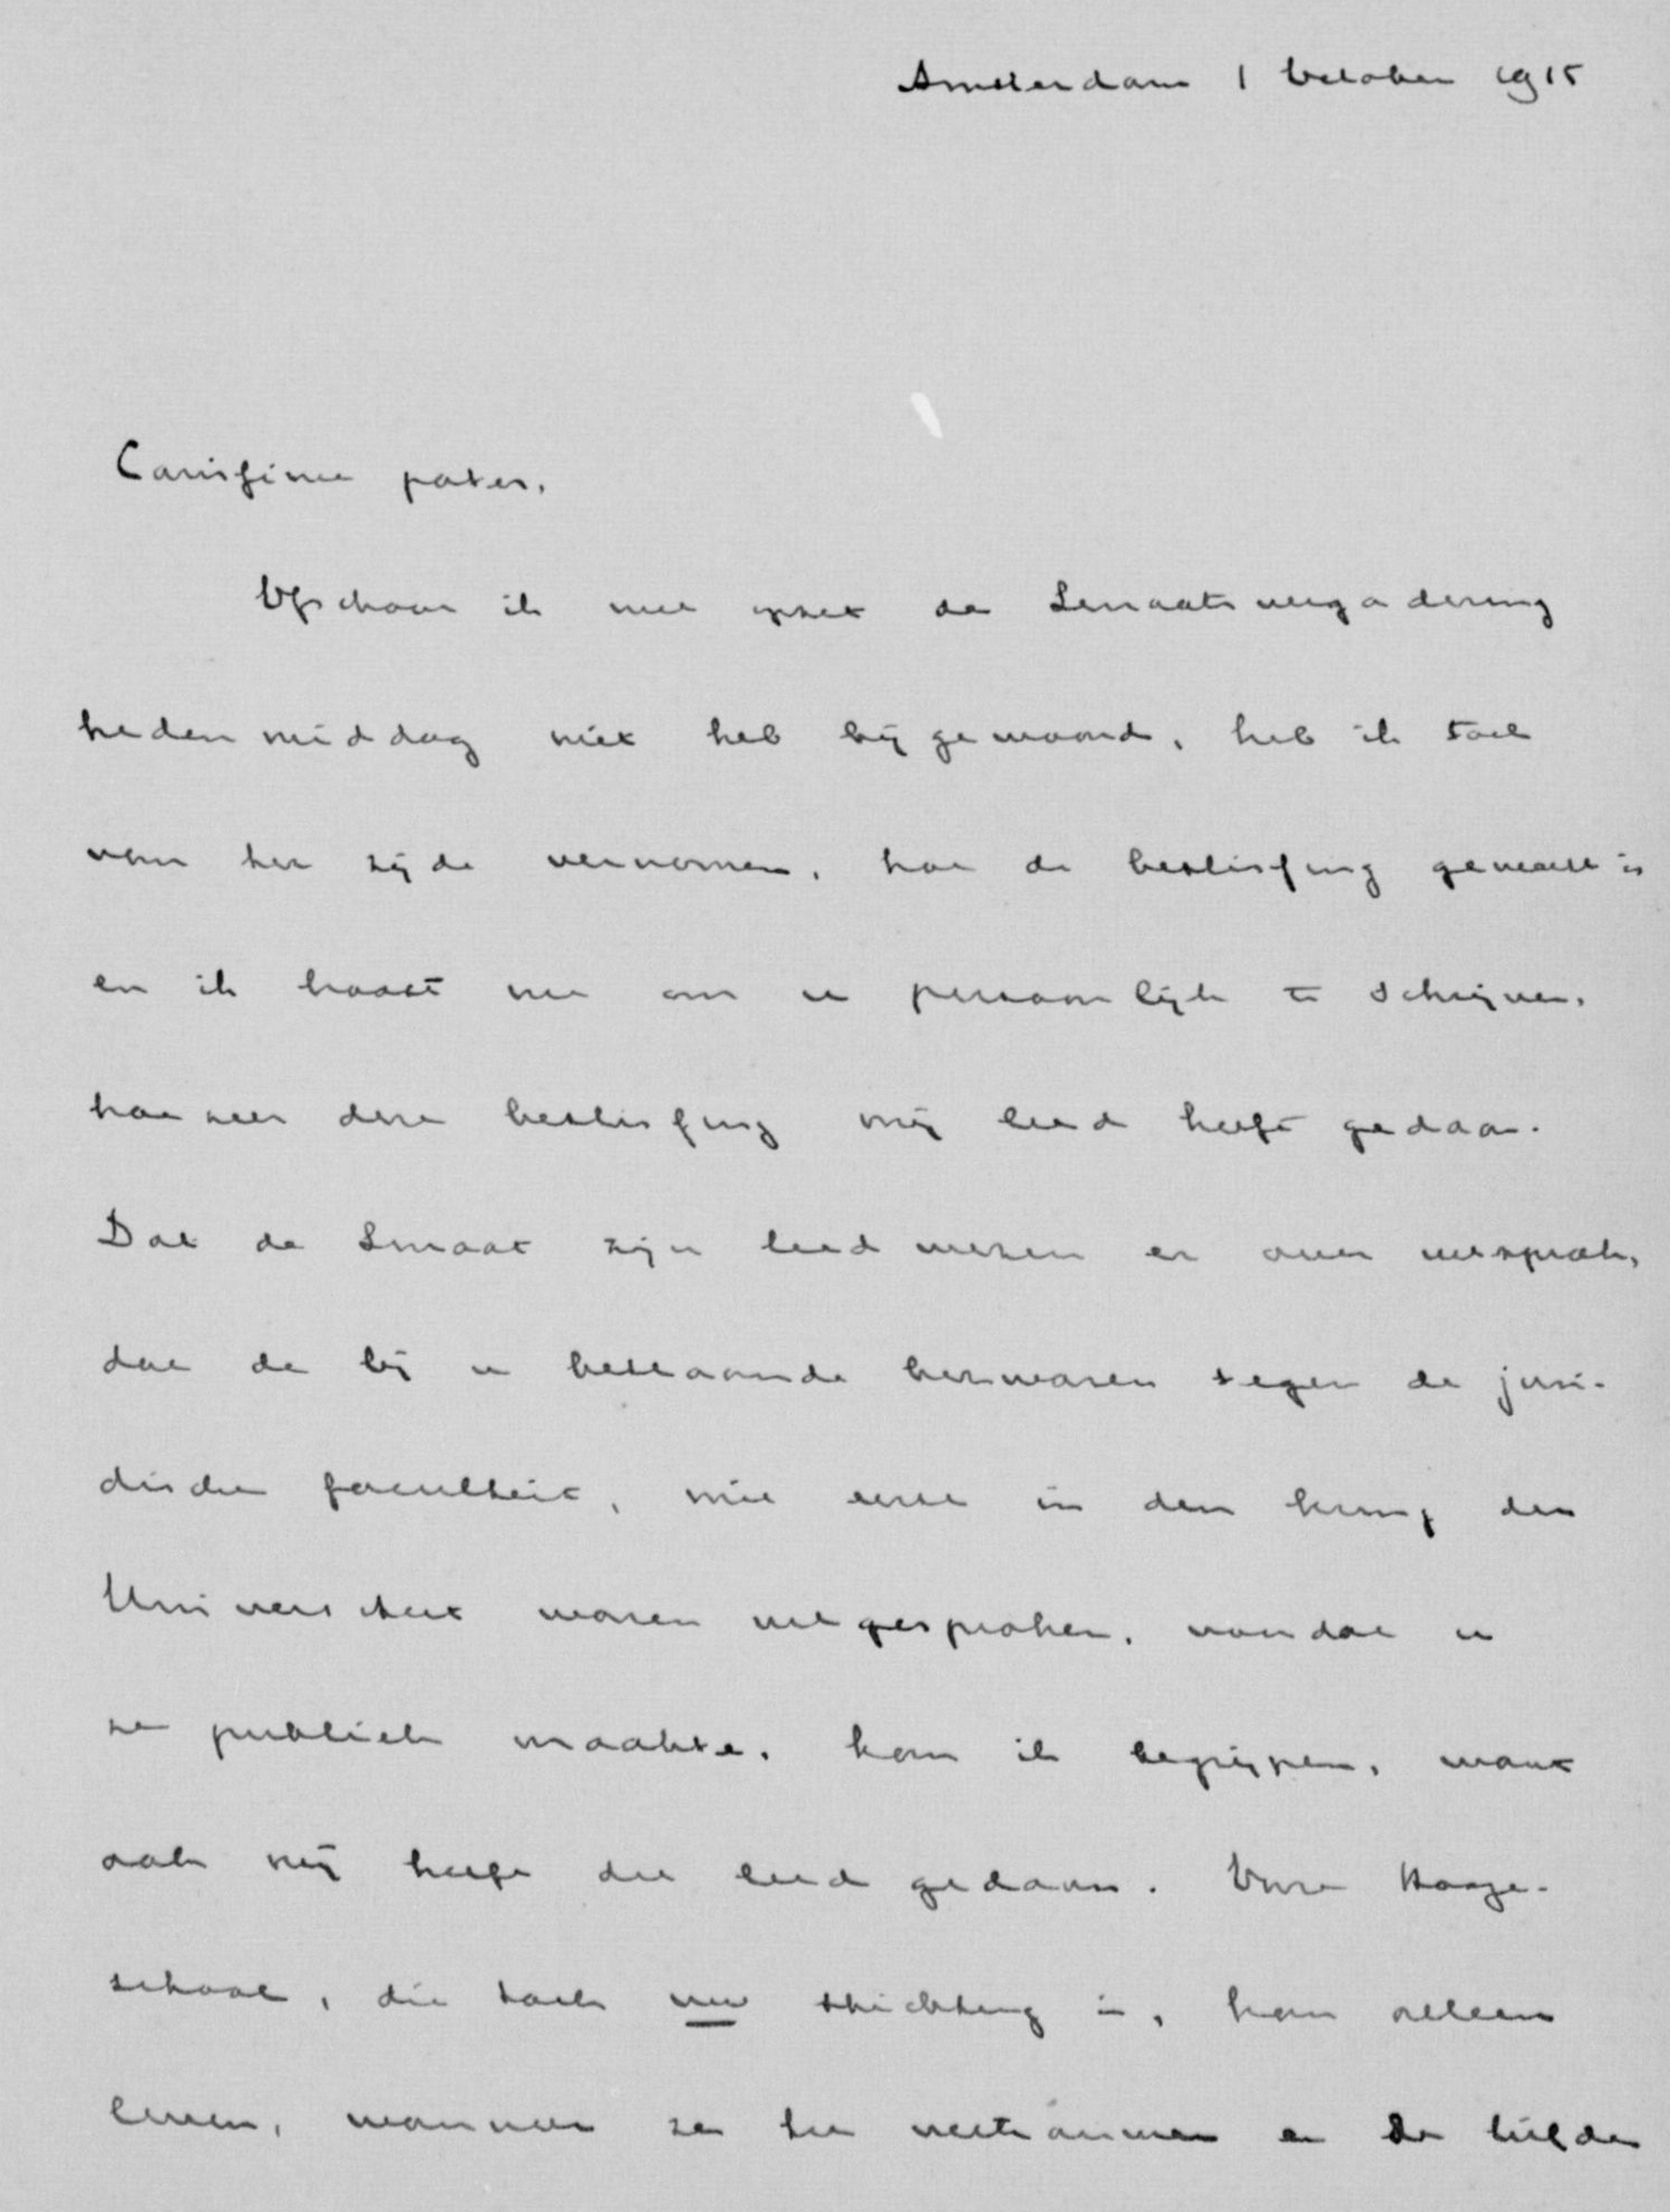 Amsterdam 1 October 1915
Carissime pater.
Ofschoon ik met opzet de Senaatsvergadering
hedenmiddag niet heb bijgewoond, heb ik toch
van ter zijde vernomen, hoe de beslissing gevallen is
en ik haast me om u persoonlijk te schrijven,
hoe zeer deze beslissing mij leed heeft gedaan.
Dat de Senaat zijn leedwezen er over uitsprak,
dat de bij u bestaande bezwaren tegen de juri-
dische faculteit, niet eerst in den kring der
Universiteit waren uitgesproken, voordat u
ze publiek maakte, kan ik begrijpen, want
ook mij heeft dit leed gedaan. Onze Hooge-
school, die toch uw stichting is, kan alleen
leven, wanneer ze het vertrouwen en de liefde